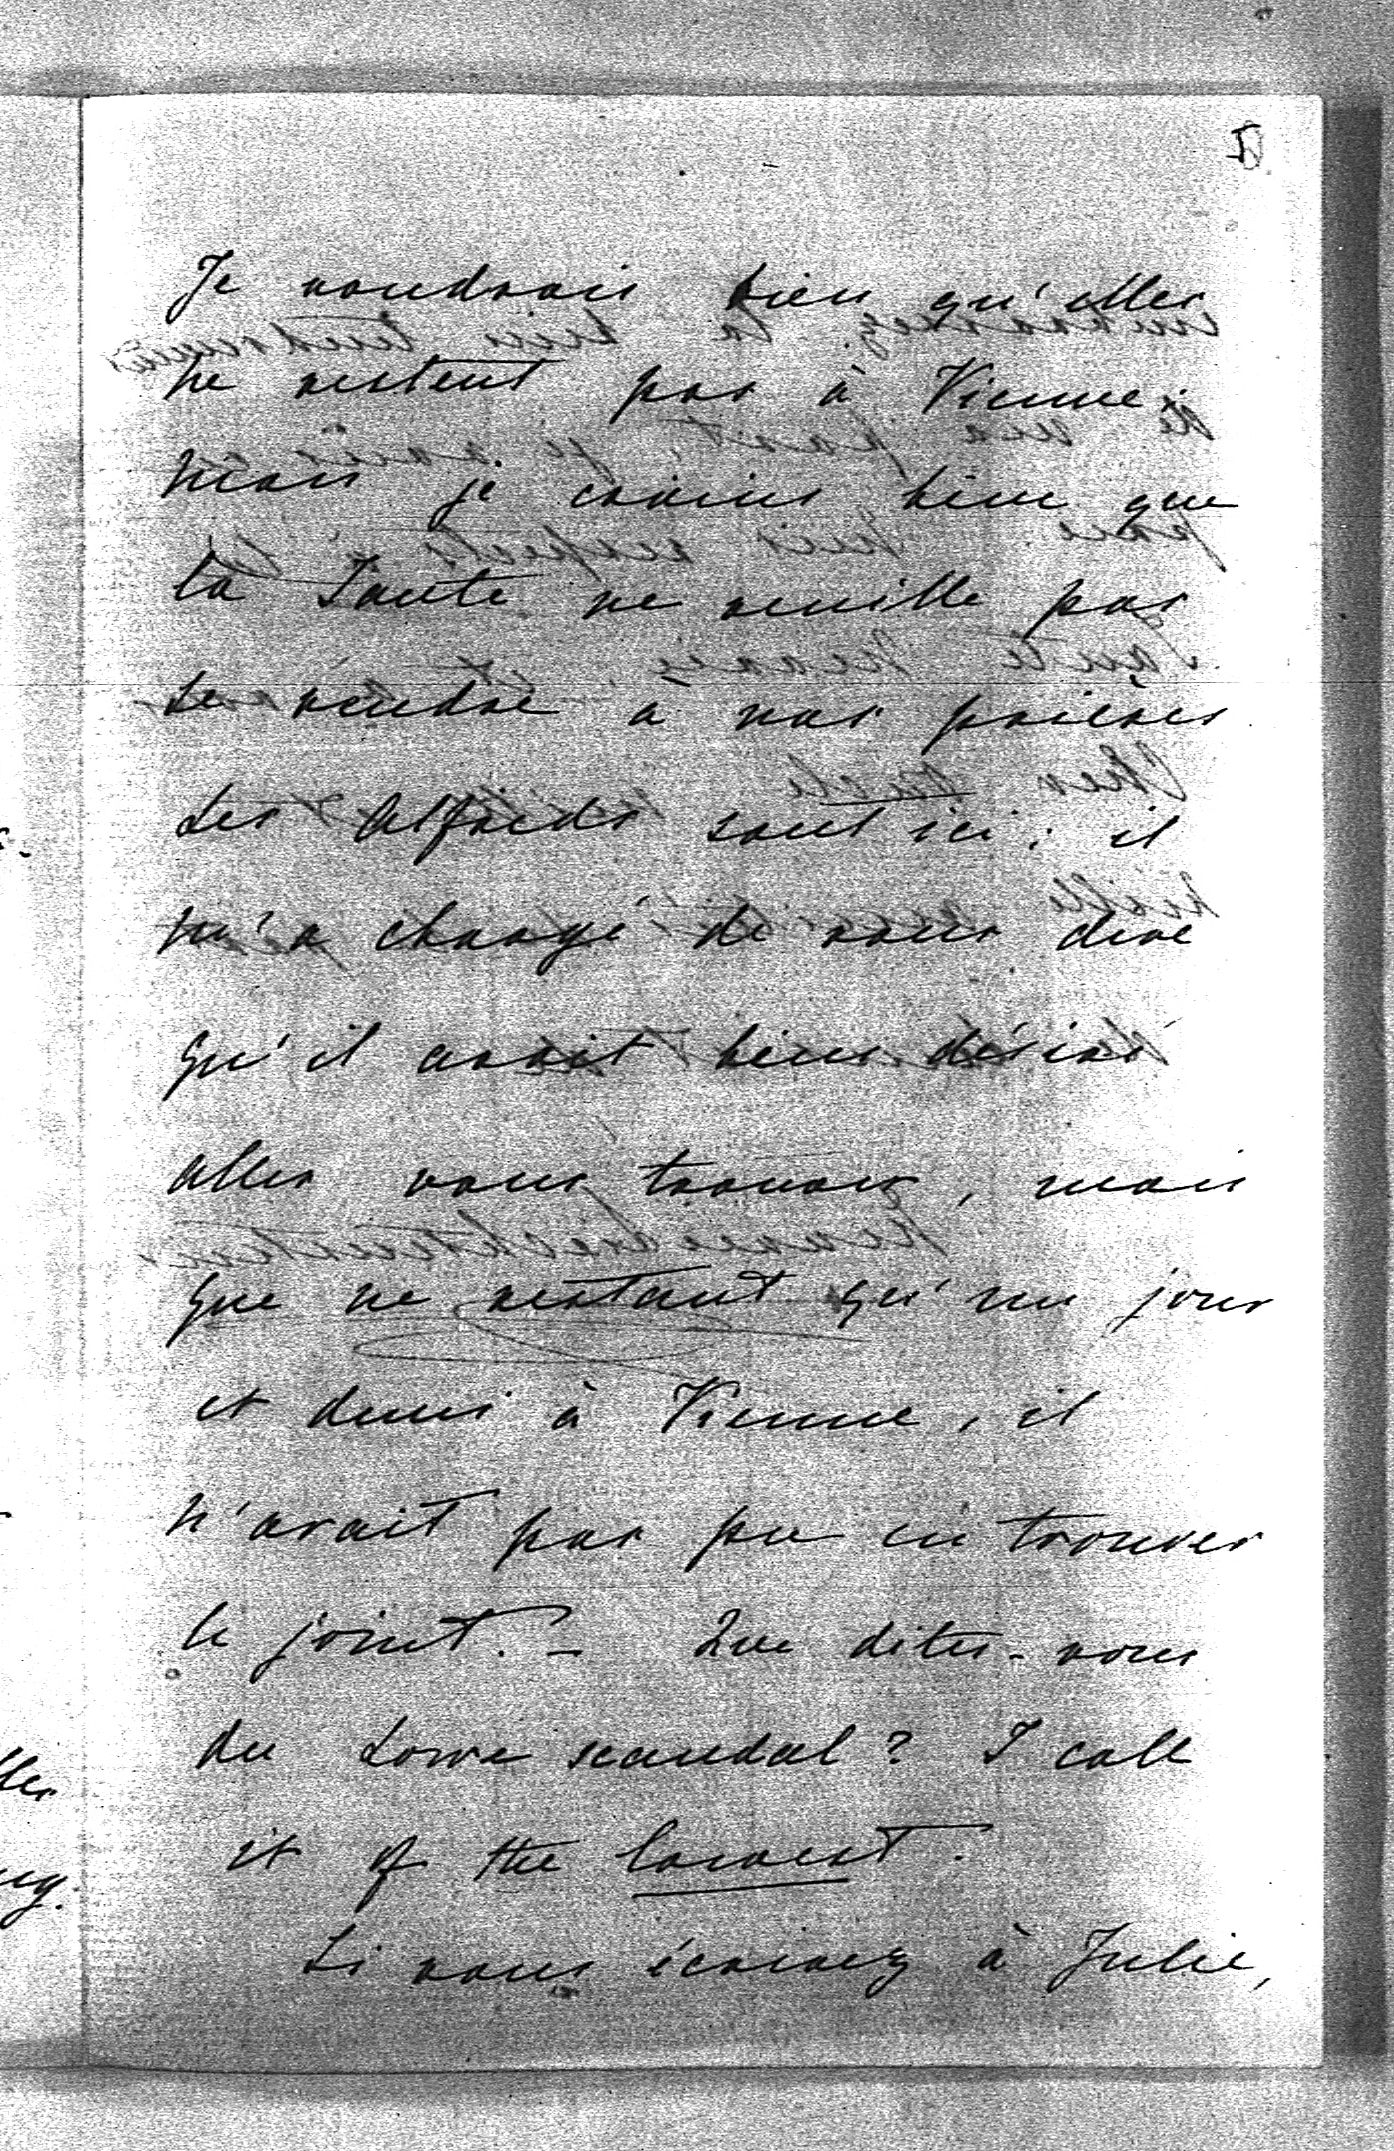 Je voudrais bien qu'elles
ne restent pas à Vienne;
mais je crains bien que
la Tante ne veuille pas
se rendre à nos prières
Les Alfreds sont ici; il
m'a chargé de vous dire
qu'il avait bien désiré
aller vous trouver, mais
que ne restant qu'un jour
et demi à Vienne, il
n'avait pas pu en trouver
le joint. – Que dites-vous
du Lowe scandal? I call
it of the lowest.
Si vous écrivez à Julie,